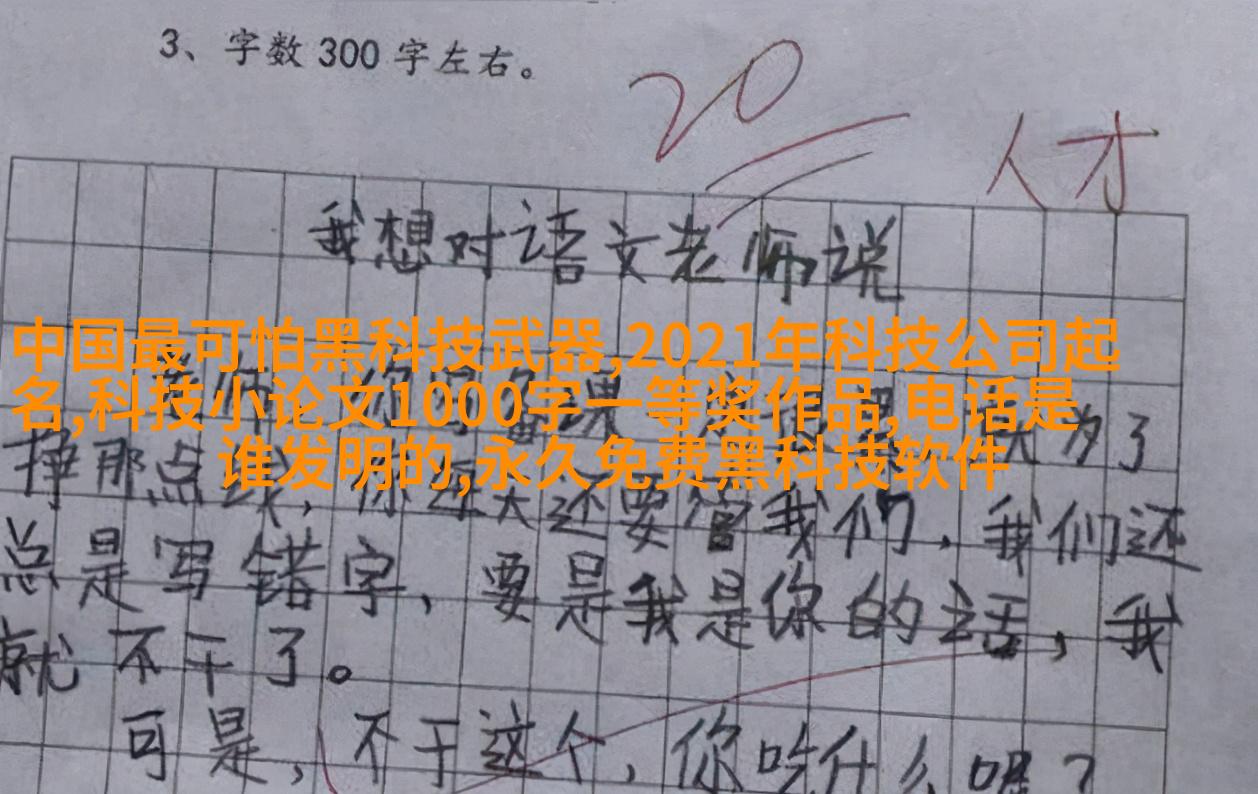 3、字数300字左右。
20
人才
我想对语文老师说
中国最可怕黑科技武器,2021年科技公司起
名,科技小论文1000字一等奖作品,电话是
谁发明的,永久免费黑科技软件
师
了
挣那点
还要管我们，我们还
总是写错字，要是我是你的话，我
就不干了。
可是，不干这个，你吃什么呢？